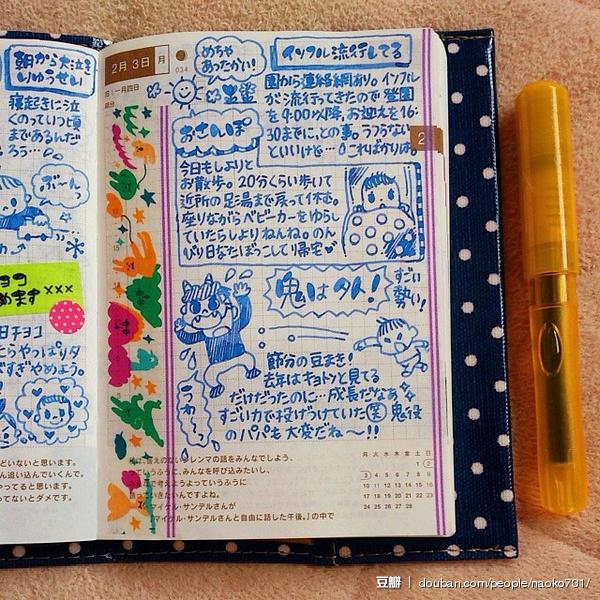 朝から大泣き
りゅうせい
寝起きに泣
くのっていつ頃
まであるんだ
ろう…
ぶ〜んっ
ョコ
めます ×××
日チョコ
たらやっぱりダ
すぎやめよう。
どいないと思います。
ん追い込んでいくんで。
やってると思います。
ってないとダメです。
2月3日 月
034
めちゃ
あったかい!
インフル流行してる
園から連絡網あり。インフル
が流行ってきたので登園
を9:00以降、お迎えを16:
30までに、との事。うつらない
といいけど…こればかりは。
2
おさんぽ
今日もしよりと
お散歩。20分くらい歩いて
近所の足湯まで戻って休む。
座りながらベビーカーをゆらし
ていたらしよりねんね。のん
びり日なたぼっこして帰宅♡
鬼は外!
すごい
勢い!
うわ〜っ
節分の豆まき!
去年はキョトンと見てる
だけだったのに…成長だなぁ
すごい力で投げつけていた 笑 鬼役
のパパも大変だね〜!!
答えのないジレンマの話をみんなでしよう、
っていうふうに、みんなを呼び込みたいし、
で考えようよっていうふうに
いきたいんですよね。
マイケル・サンデルさんが
マイケル・サンデルさんと自由に話した午後。』の中で
月 火 水 木 金 土 日
1 2
3 4 5 6 7 8 9
10 11 12 13 14 15 16
17 18 19 20 21 22 23
24 25 26 27 28
豆瓣 | douban.com/people/naoko731/